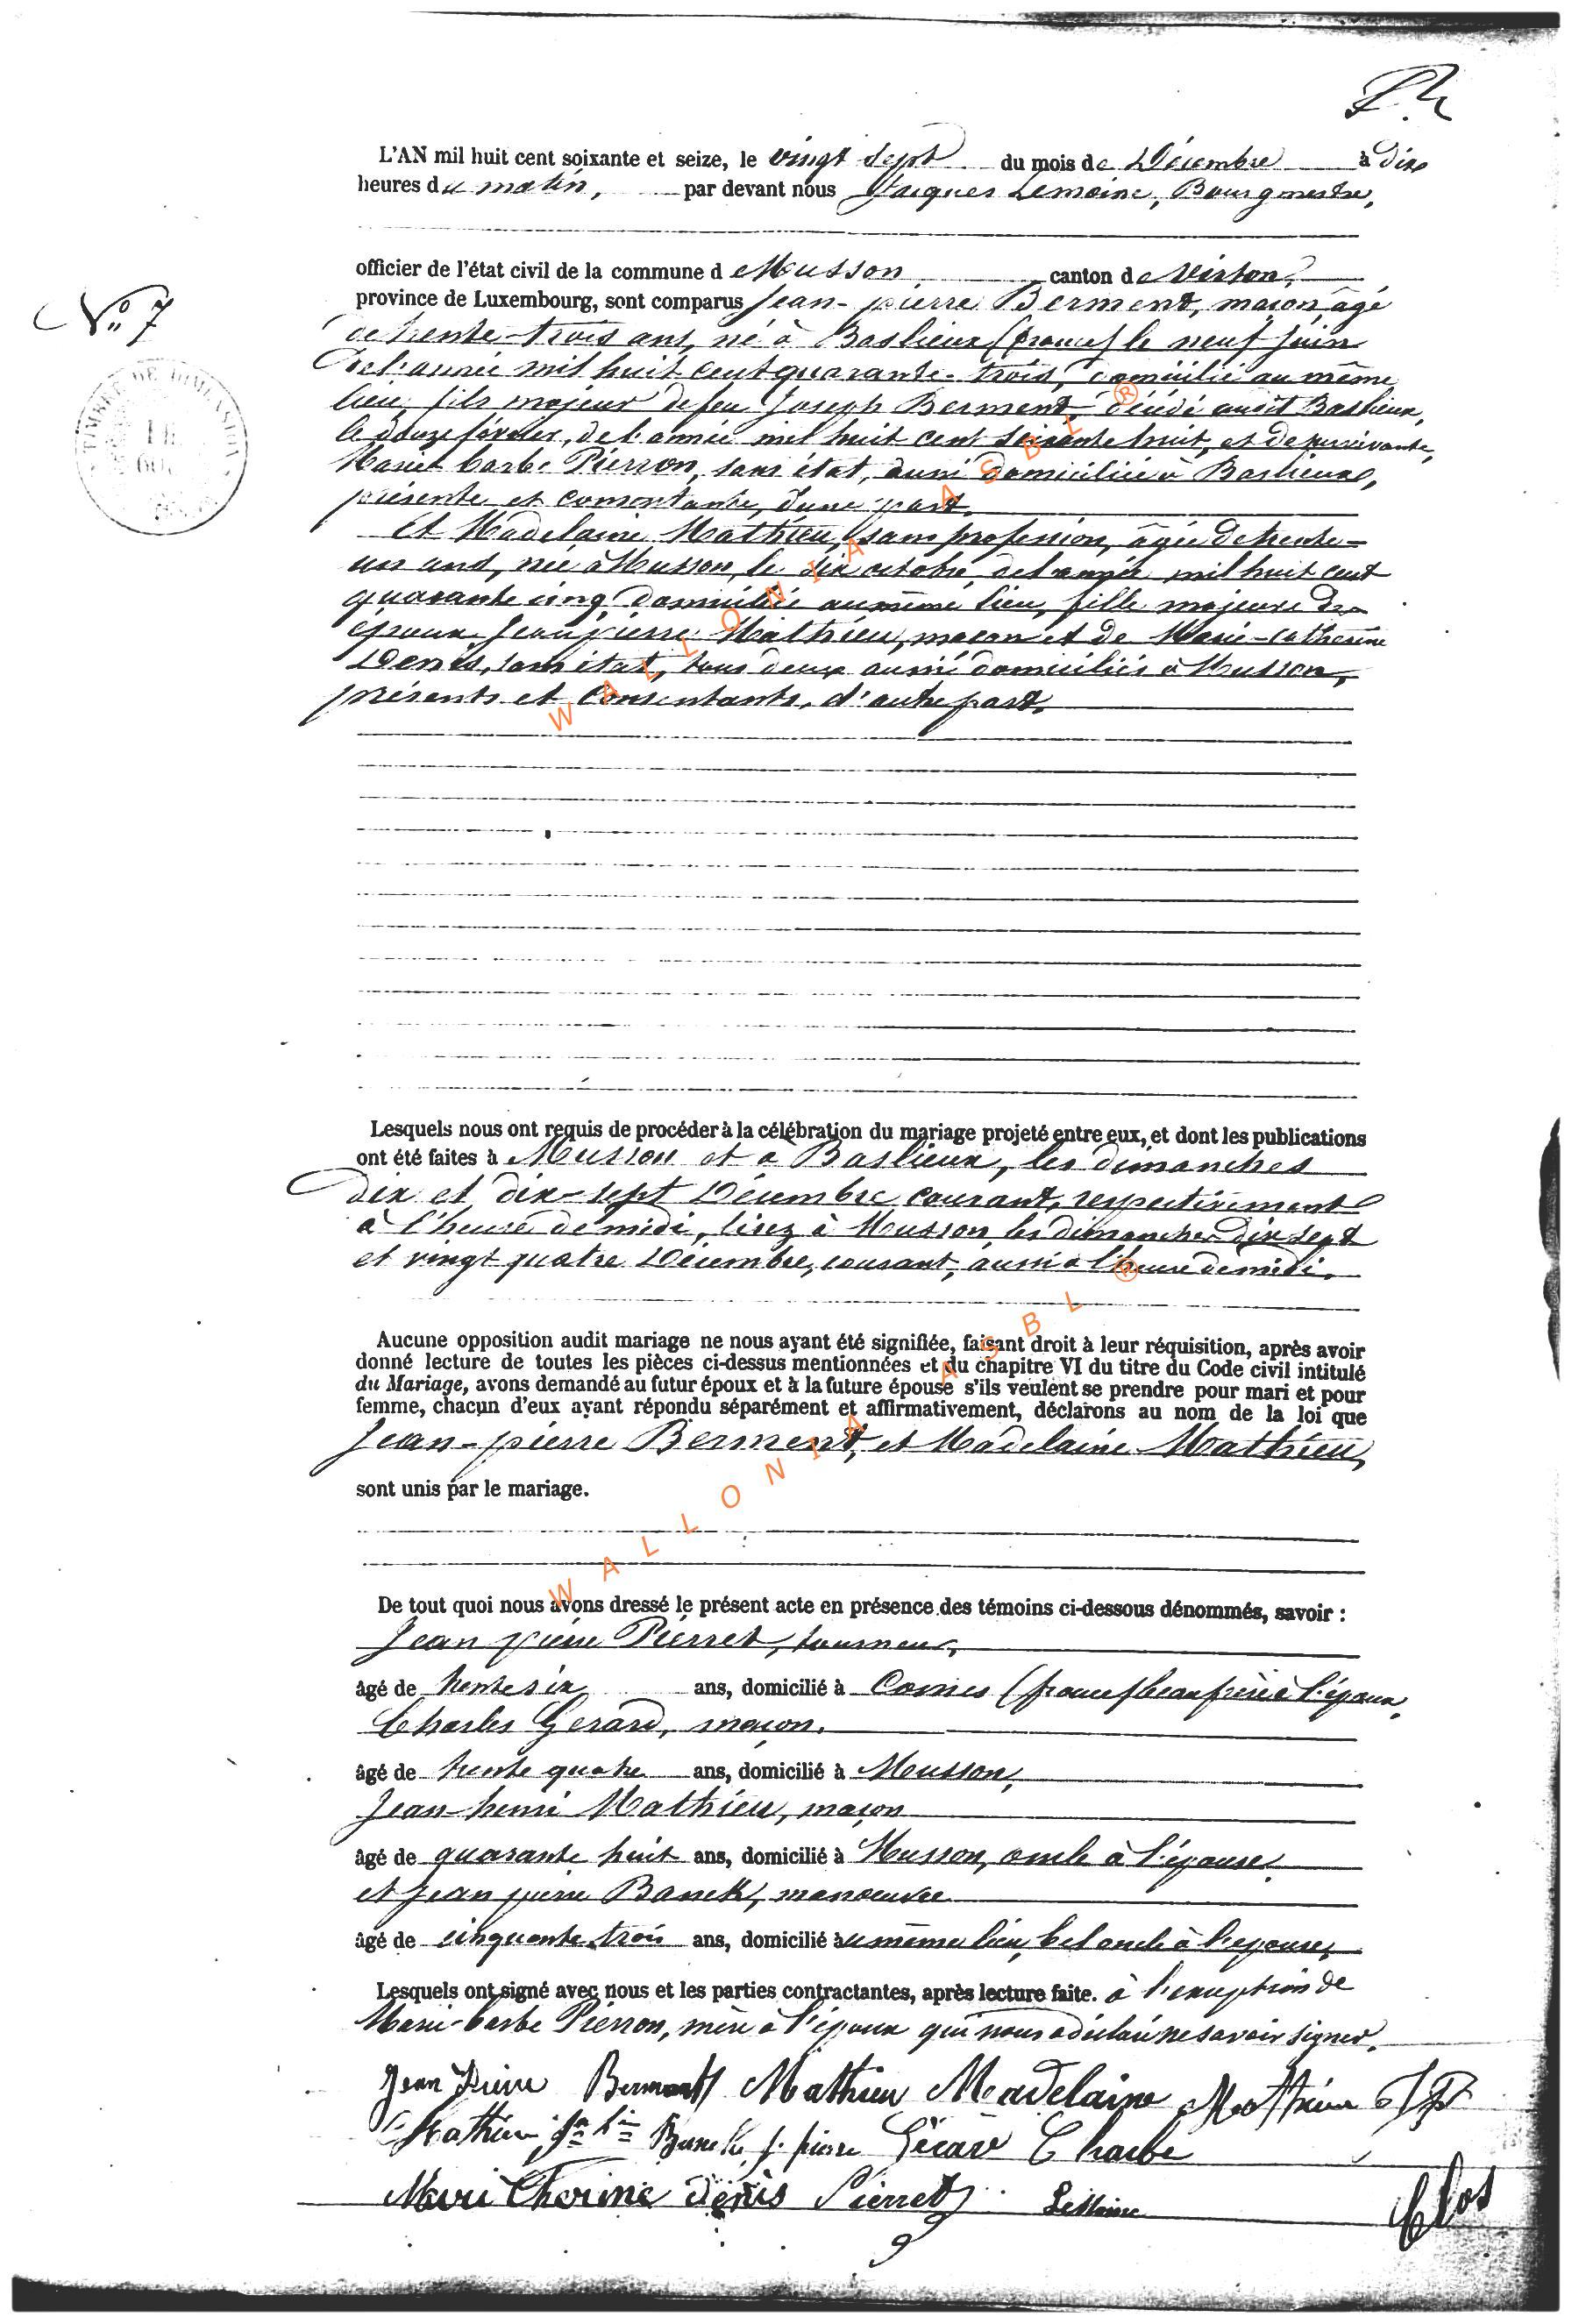 L'AN mil huit cent soixante et seize, le vingt sept du mois de Décembre à dix
heures du matin, par devant nous Jacques Lemoine, Bourgmestre,
officier de l'état civil de la commune de Musson canton de Virton,
N° 7
province de Luxembourg, sont comparus Jean-pierre Berment, maçon âgé
de trente-trois ans, né à Baslieux (france) le neuf Juin
de l'année mil huit cent quarante-trois, domicilié au même
lieu, fils majeur de feu Joseph Berment, décédé audit Baslieux,
le douze février, de l'année mil huit cent soixante huit, et de survivante,
TIMBRE DE DIMENSION
Marie barbe Pierron, sans état, aussi domiciliée à Baslieux,
présente et consentante, d'une part.
Et Madelaine Mathieu, sans profession, âgée de trente-
un ans, née à Musson, le dix octobre de l'année mil huit cent
quarante cinq, domiciliée au même lieu, fille majeure des
époux Jean pierre Mathieu, maçon et de Marie-catherine
Denis, sans état, tous deux aussi domiciliés à Musson,
présents et consentants, d'autre part.
WALLONIA ASBL ®
Lesquels nous ont requis de procéder à la célébration du mariage projeté entre eux, et dont les publications
ont été faites à Musson et à Baslieux, les dimanches
dix et dix-sept Décembre courant, respectivement
à l'heure de midi, lisez à Musson, les dimanches dix sept
et vingt quatre Décembre, courant, aussi à l'heure de midi.
Aucune opposition audit mariage ne nous ayant été signifiée, faisant droit à leur réquisition, après avoir
donné lecture de toutes les pièces ci-dessus mentionnées et du chapitre VI du titre du Code civil intitulé
du Mariage, avons demandé au futur époux et à la future épouse s'ils veulent se prendre pour mari et pour
femme, chacun d'eux ayant répondu séparément et affirmativement, déclarons au nom de la loi que
Jean-pierre Berment, et Madelaine Mathieu,
sont unis par le mariage.
WALLONIA ASBL ®
De tout quoi nous avons dressé le présent acte en présence des témoins ci-dessous dénommés, savoir :
Jean pierre Pierret, tourneur,
âgé de trente six ans, domicilié à Cosnes (france) beau frère à l'époux,
Charles Gerard, maçon,
âgé de trente quatre ans, domicilié à Musson,
Jean-henri Mathieu, maçon
âgé de quarante huit ans, domicilié à Musson, oncle à l'épouse,
et Jean pierre Banck, manoeuvre
âgé de cinquante trois ans, domicilié au même lieu, bel oncle à l'épouse,
Lesquels ont signé avec nous et les parties contractantes, après lecture faite. à l'exception de
Marie-barbe Pierron, mère à l'époux qui nous a déclaré ne savoir signer.
Jean Pierre Berment Mathieu Madelaine Mathieu JP
Mathieu Jn hi Banck j. pierre Gérard Charle
Marie Therine denis Pierret Lemoine
Clos